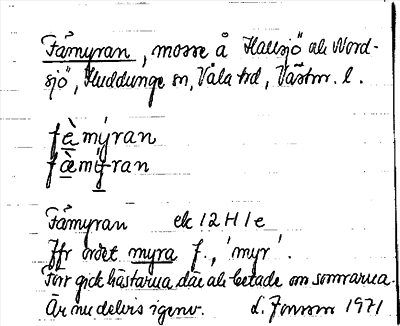 Fåmyran, mosse å Hallsjö ak Nord-
sjö, Huddunge sn, Våla hd, Västm. l.
fèmýran
fæ̀mýran
Fåmyran ek 12H1e
Jfr ordet myra f., 'myr'.
Förr gick hästarna där och betade om somrarna.
Är nu delvis igenv. L. Jonsson 1971